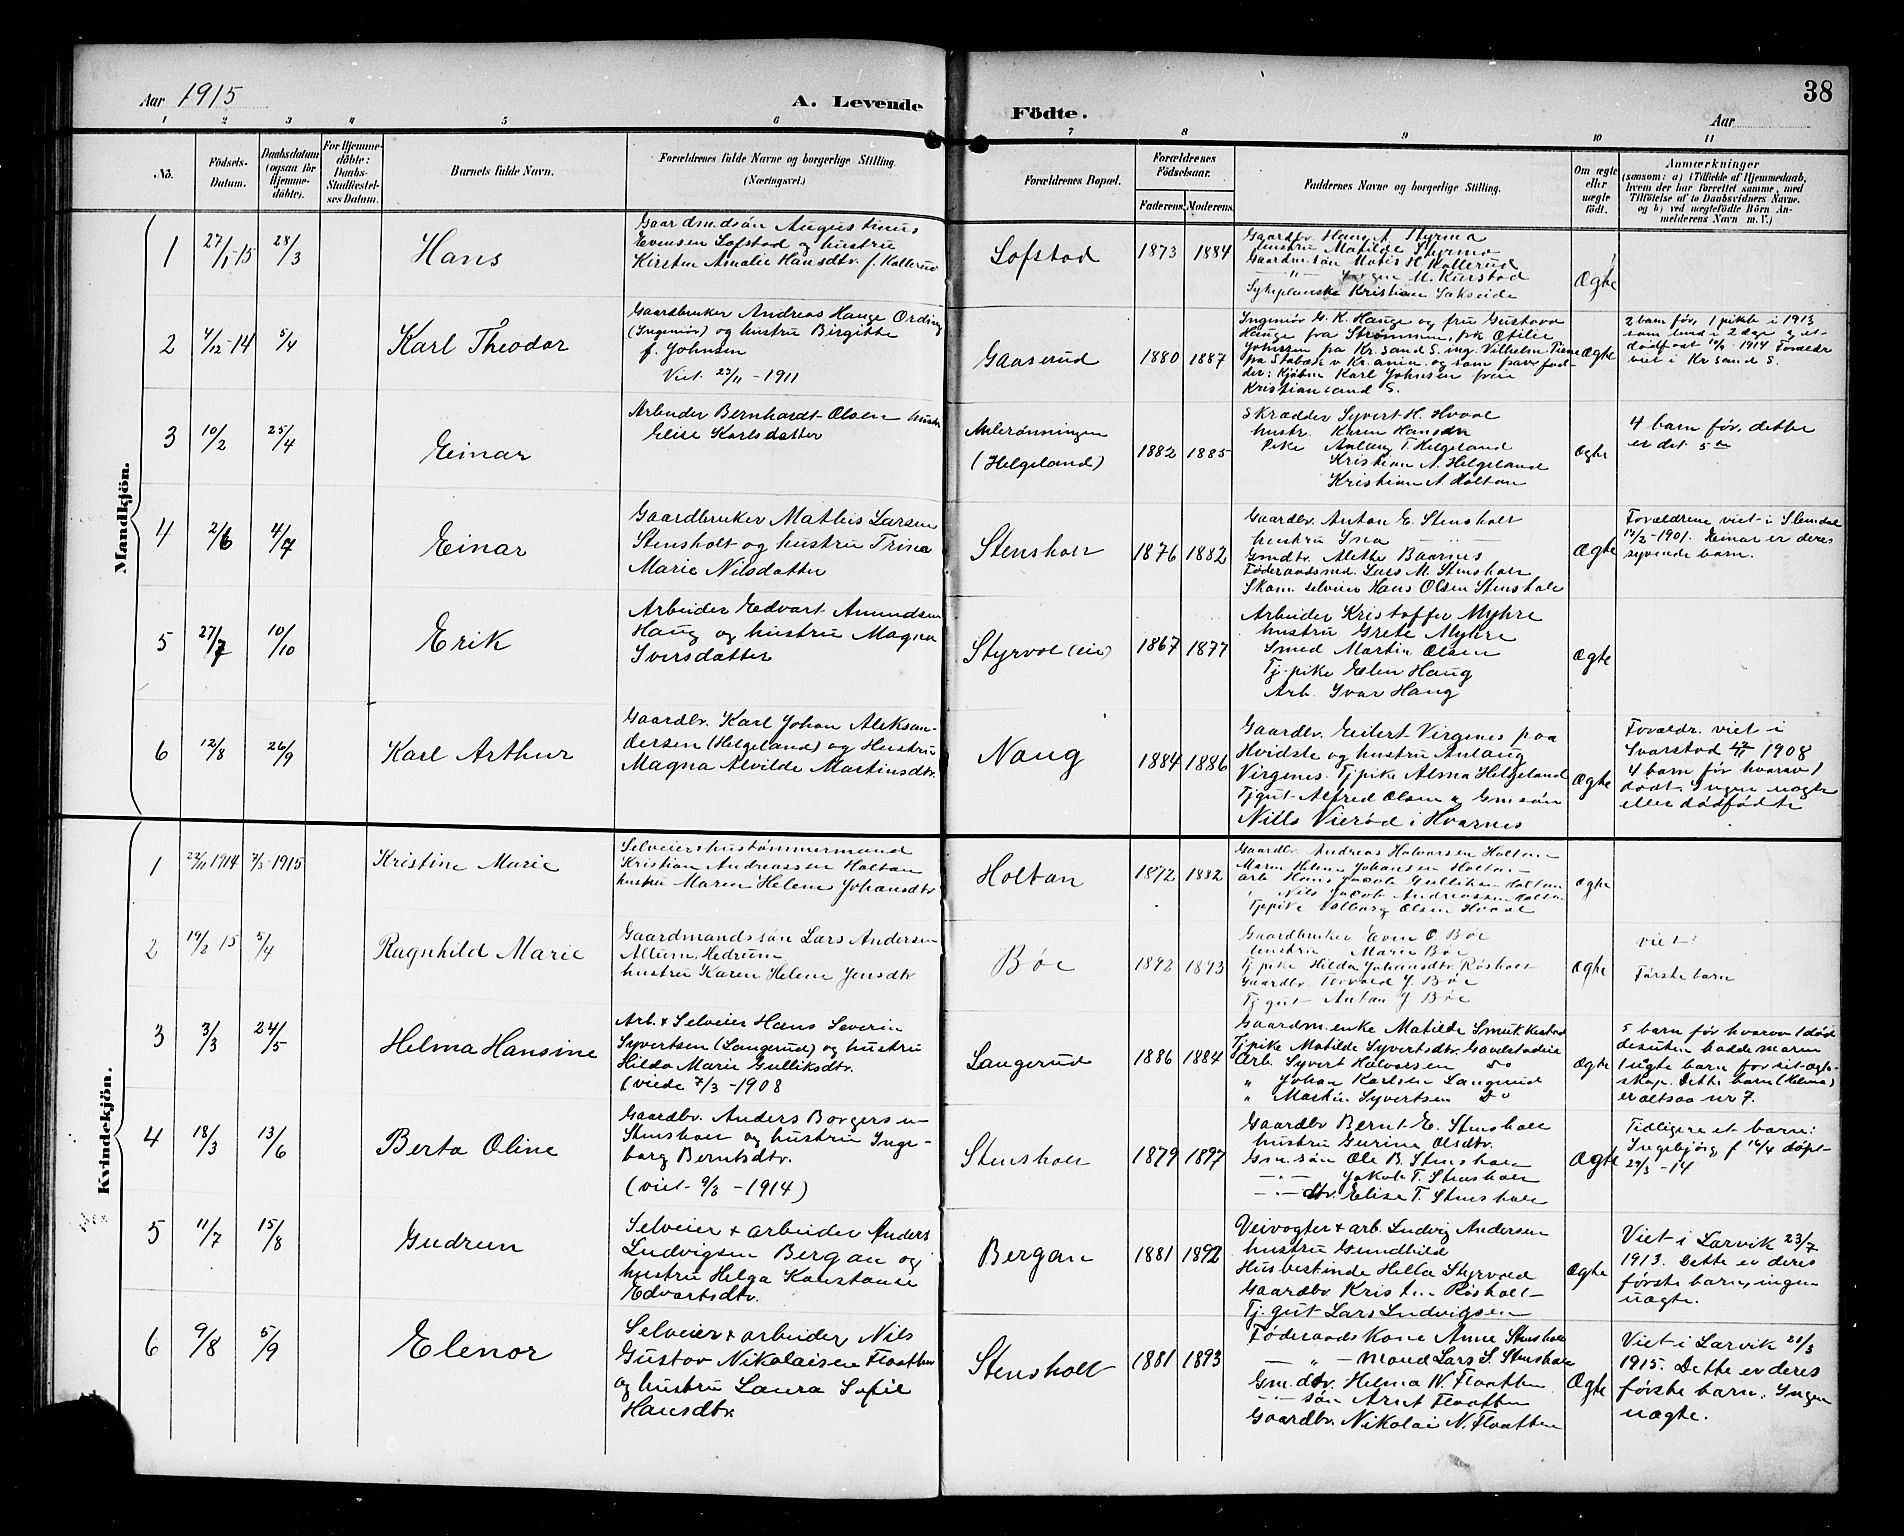 Aar 1915
A. Levende
Födte.
38
Aar
1 2 3 4 5 6 7 8 9 10 11
No.
Födsels-
Datum.
Daabsdatum
(ogsaa for
Hjemme-
döbte).
For Hjemme-
döbte:
Daabs-
Stadfæstel-
ses Datum.
Barnets fulde Navn.
Forældrenes fulde Navne og borgerlige Stilling.
(Næringsvei.)
Forældrenes Bopæl.
Forældrenes
Födselsaar.
Faderens.
Moderens.
Faddernes Navne og borgerlige Stilling.
Om ægte
eller
uægte
födt.
Anmærkninger
(saasom: a) i Tilfælde af Hjemmedaab,
hvem der har forrettet samme, med
Tilföielse af to Daabsvidners Navne.
og b) ved uægtefödte Börn An-
melderens Navn m. V.)
Mandkjön.
1
27/1-15
28/3
Hans
Gaardmdsön Augustinus
Evensen Lofstad og hustru
Kirsten Amalie Hansdtr. f. Kallerud
Lofstad
1873
1884
Gaardbr. Hans A. Styrmo
hustru Matilde Styrmo
Gaardm.sön Mathis H. Kallerud
M. Kjerstad
Kristian Sakseide
Ægte
2
4/12-14
5/4
Karl Theodor
Gaardbruker Andreas Hauge Ording
(Ingeniör) og hustru Birgitte
f. Johnsen
Viet 23/11-1911
Gaaserud
1880
1887
Ingeniör G. K. Hauge og fru Gustava
Hauge fra Strømmen, pk Otilie
Johnsen fra Kr.sand S. ing. Vilhelm
fra Stabæk v. Kr.ania og som
der: Kjøbm. Karl Johnsen fra
Kristiansand S.
Ægte
2 barn før, 1 pikke i 1913
som levde i 2 dage og et
dødfødt 1914 Forældr
viet i Kr.sand S.
3
10/2
25/4
Einar
Arbeider Bernhardt Olsen hustru
Elise Karlsdatter
Milerønningen
(Helgeland)
1882
1885
Skrædder Syvert H. Hvaal
hustr. Karen Hansdtr
Pike Anlaug T. Helgeland
Kristian A. Helgeland
Kristian A. Holtan
Ægte
4 barn før, dette
er det 5te
4
2/6
4/7
Einar
Gaardbruker Mathis Larsen
Stensholt og hustru Trina
Marie Nilsdatter
Stensholt
1876
1882
Gaardbr. Anton E. Stensholt
hustru Ina — " —
Gmdtr. Alette Baarnes
Føderaadsmd. Lars M. Stensholt
Skom. selveier Hans Olsen Stensholt
Ægte
Forældrene viet i Slemdal
1901. Einar er deres
syvende barn.
5
27/7
10/10
Erik
Arbeider Edvart Amundsen
Haug og hustru Magna
Iversdatter
Styrvol (eie)
1867
1877
Arbeider Kristoffer Myhre
hustru Grete Myhre
Smed Martin Olsen
Tj.pike Elen Haug
Arb. Ivar Haug
Ægte
6
12/8
26/9
Karl Arthur
Gaardbr. Karl Johan Aleksan-
dersen (Helgeland) og Hustru
Magna Alvilde Martinsdtr.
Naug
1884
1886
Gaardbr. Eilert Virgenes paa
Hvidste og hustru Anlaug
Virgenes. Tjpike Alma Helgeland
Tjgut Alfred Olsen og Gmsön
Nills Vierød i Hvarnes
Ægte
Forældr. viet i
Svarstad 1908
4 barn før hvorav 1
dødt. Ingen uægte
eller dødfødte
Kvindekjön.
1
22/11 1914
7/3-1915
Kristine Marie
Selveier & hustømmermand
Kristian Andreassen Holtan
hustru Maren Helene Johansdtr.
Holtan
1872
1882
Gaardbr. Andreas Halvorsen Holtan
Maren Helene Johansen Holtan
Arb Hans Jacob Gulliksen Holtan
" Nils Jacob Andreassen Holtan
Tjpike Valborg Olsen Hvaal
Ægte
2
19/2 15
5/4
Ragnhild Marie
Gaardmandssön Lars Andersen
Allum, Hedrum
hustru Karen Helene Jensdtr
Bøe
1892
1893
Gaardbruker Even O. Bøe
hustru Marie Bøe
Tj pike Hilda Johansdtr. Røsholt
Gaardbr. Torvald J. Bøe
Tj gut Anton J Bøe
Ægte
viet
Første barn
3
3/3
24/5
Helma Hansine
Arb. & Selveier Hans Severin
Syvertsen (Langerud) og hustru
Hilda Marie Gulliksdtr.
(viede 7/3-1908
Langerud
1886
1884
Gaardm.enke Matilde
Tjpike Matilde Syvertsdtr.
Arb. Syvert Halvorsen Do
" Johan Karlsen Langerud
" Martin Syvertsen Do
Ægte
5 barn før hvorav 1 død
desuten hadde moren
1 uægte barn før sit ægte-
skap. Dette barn (Helma)
er altsaa nr 7.
4
18/3
13/6
Berta Oline
Gaardbr. Anders Borgersen
Stensholt og hustru Inge-
borg Berntsdtr.
(viet 9/3-1914)
Stensholt
1879
1897
Gaardbr Bernt E. Stensholt
hustru Gurine Olsdtr.
Gm.sön Ole B. Stensholt
— " — Jakob T. Stensholt
— " — dtr. Elise T. Stensholt
Ægte
Tidligere et barn:
Ingebjörg f 14/4 döpt
-14
5
11/7
15/8
Gudrun
Selveier & arbeider Anders
Ludvigsen Bergan og
hustru Helga Konstanse
Edvartsdtr.
Bergan
1881
1892
Veivogter & arb. Ludvig Andersen
hustru Gundhild
Husbestinde Hella Styrvold
Gaardbr. Kristen Røsholt
Tj.gut Lars Ludvigsen
Ægte
Viet i Larvik 23/7
1913. Dette er deres
første barn, ingen
uægte.
6
9/8
5/9
Elenor
Selveier & arbeider Nils
Gustav Nikolaisen Flaatten
og hustru Laura Sofie
Hansdtr.
Stensholt
1881
1893
Føderaads Kone Anne Stensholt
— " — Mand Lars S. Stensholt
Gm.dtr. Helma N. Flaatten
— " — sön Arnt Flaatten
Gaardbr. Nikolai N. Flaatten
Ægte
Viet i Larvik 21/3
1915. Dette er deres
første barn. Ingen
uægte.